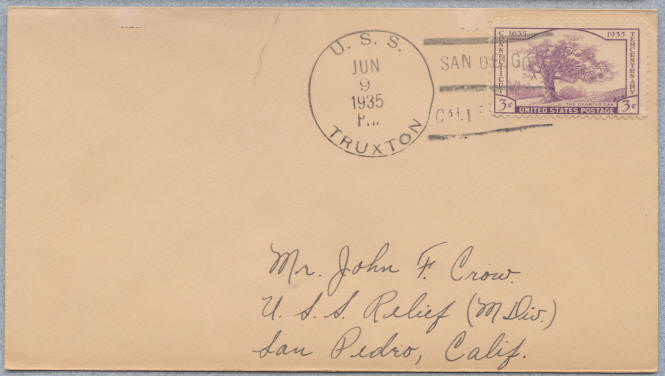 U. S. S.
JUN
9
1935
P.M.
TRUXTON
SAN DIEGO
CALIF
CONNECTICUT 1635 1935 TERCENTENARY
THE CHARTER OAK
3¢ UNITED STATES POSTAGE 3¢
Mr. John F. Crow.
U. S. S. Relief (M Div.)
San Pedro, Calif.